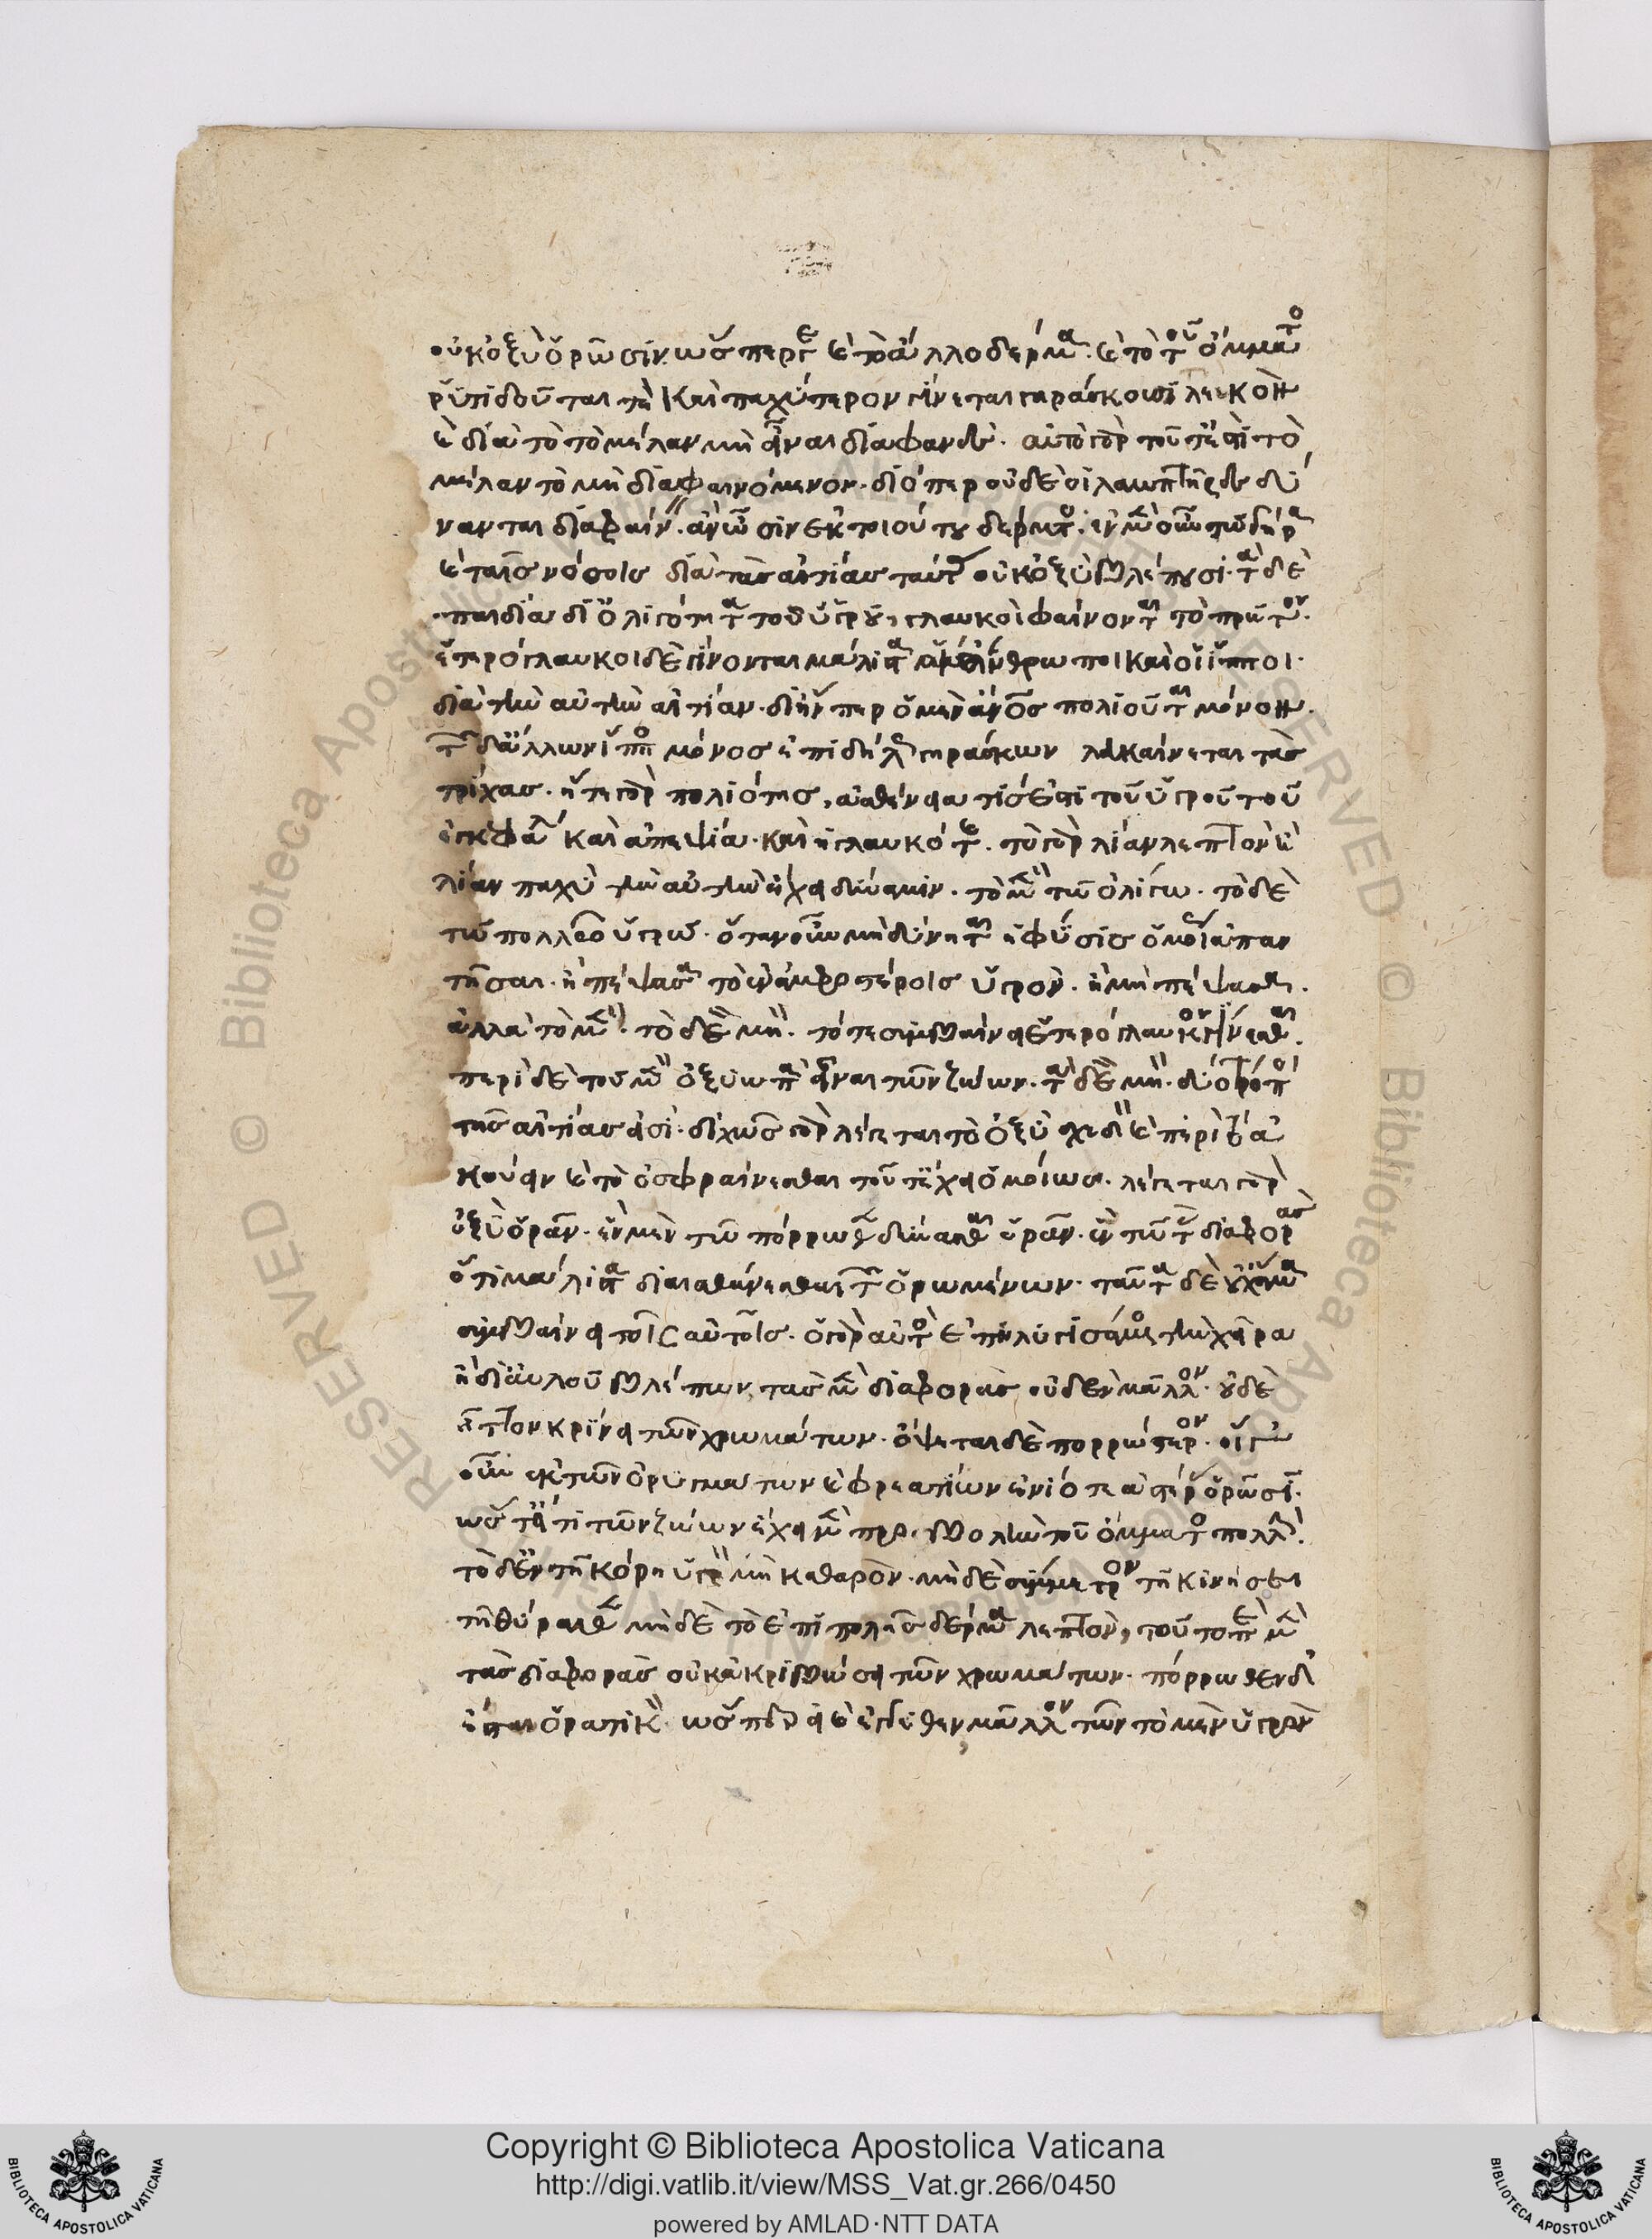 οὐκ ὀξὺ ὁρῶσιν ὥσπερ γ καὶ τὸ ἄλλο δέρμα καὶ τὸ τοῦ ὄμματος
ῥυτιδοῦταί τε καὶ παχύτερον γίνεται γηράσκουσι
καὶ διὰ τὸ τὸ μέλαν μὴ εἶναι διαφανὲς. αὐτὸ γὰρ τοῦτ' ἐστὶ τὸ
μέλαν τὸ μὴ διαφαινόμενον. διόπερ οὐδὲ οἱ λαμπτῆρες δύ
νανται διαφαίνειν. ἂν ὦσιν ἐκ τοιούτου δέρματος. ἐν μὲν οὖν τῷ γήρᾳ
καὶ ταῖς νόσοις διὰ τὰς αἰτίας ταύτας οὐκ ὀξὺ βλέπουσι. τὰ δὲ
παιδία δι' ὀλιγότητα τοῦ ὑγροῦ, γλαυκοὶ φαίνονται τὸ πρῶτον.
ἑτερόγλαυκοι δὲ γίνονται μάλιστα ἄνθρωποι καὶ οἱ ἵπποι.
διὰ τὴν αὐτὴν αἰτίαν. δι' ἥνπερ ὁ μὲν ἄνος πολιοῦται μόνον.
τῶν δ' ἄλλων ἵππος μόνος ἐπιδήλως γηράσκων λευκαίνεται τὰς
τρίχας. ἥ τε γὰρ πολιότης, ἀσθένειά τίς ἐστι τοῦ ὑγροῦ τοῦ
ἐγκεφάλου καὶ ἀπεψία. καὶ ἡ γλαυκότης. τὸ γὰρ λίαν λεπτὸν καὶ
λίαν παχὺ τὴν αὐτὴν ἔχει δύναμιν. τὸ μὲν τῷ ὀλίγῳ. τὸ δὲ
τῷ πολλῷ ὑγρῷ. ὅταν οὖν μὴ δύνηται ἡ φύσις ὁμοίως ἀπαρ
τῆσαι. ἢ πέψασα τὸ ἐν ἀμφοτέροις ὑγρόν. ἢ μὴ πέψασα.
ἀλλὰ τὸ μὲν. τὸ δὲ μὴ. τότε συμβαίνει ἑτερόγλαυκον γίνεσθαι.
περὶ δὲ τοῦ μὲν ὀξυωπὰ εἶναι τῶν ζώων. τὰ δὲ μὴ. δύο τρόποι
τῆς αἰτίας εἰσί. διχῶς γὰρ λέγεται τὸ ὀξὺ σχεδὸν καὶ περὶ τὸ ἀ
κούειν καὶ τὸ ὀσφραίνεσθαι τοῦτ' ἔχει ὁμοίως. λέγεται γὰρ
ὀξὺ ὁρᾶν. ἓν μὲν τὸ πόρρωθεν δύνασθαι ὁρᾶν. ἓν τὸ τὰς διαφορὰς
ὅτι μάλιστα διαισθάνεσθαι τῶν ὁρωμένων. ταῦτα δὲ οὐχ ἅμα
συμβαίνει τοῖς αὐτοῖς. ὁ γὰρ αὐτὸς ἐπηλυγισάμενος τὴν χεῖρα
ἢ δι' αὐλοῦ βλέπων, τὰς μὲν διαφορὰς οὐδὲν μᾶλλον. οὐδὲ
ἧττον κρίνει τῶν χρωμάτων. ὄψεται δὲ πορρώτερον. οἱ γ
οὖν ἐκ τῶν ὀρυγμάτων καὶ φρεατίων ἐνίοτε ἀστέρας ὁρῶσιν.
ὥστ' εἴ τι τῶν ζώων ἔχει μὲν προβολὴν τοῦ ὄμματος πολλὴν.
τὸ δ' ἐν τῇ κόρῃ ὑγρὸν μὴ καθαρὸν. μηδὲ σύμμετρον τῇ κινήσει
τῇ θύραθεν μηδὲ τὸ ἐπιπολῆς δέρμα λεπτὸν, τοῦτο περὶ μὲν
τὰς διαφορὰς οὐκ ἀκριβώσει τῶν χρωμάτων. πόρρωθεν δ'
ἔσται ὁρατικὸν ὥσπερ εἰ καὶ ἐγγύθεν μᾶλλον τῶν τὸ μὲν ὑγρὸν
Copyright © Biblioteca Apostolica Vaticana
http://digi.vatlib.it/view/MSS_Vat.gr.266/0450
powered by AMLAD·NTT DATA
BIBLIOTECA APOSTOLICA VATICANA
BIBLIOTECA APOSTOLICA VATICANA